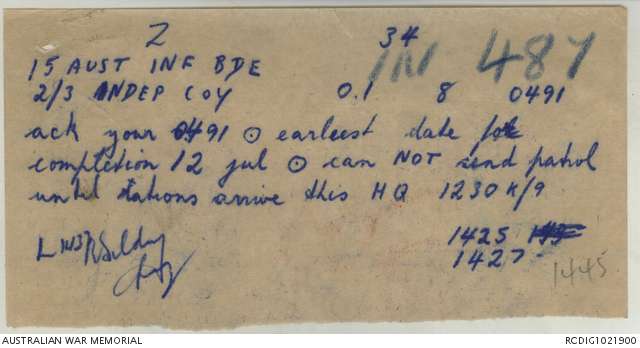 Z 34 IN 487
15 AUST INF BDE
2/3 INDEP COY 0.1 8 0491
ack your 0491 ⊙ earleest date for
completion 12 jul ⊙ can NOT send patrol
until rations arrive this HQ 1230 K/9
1425
1427
1445
AUSTRALIAN WAR MEMORIAL RCDIG1021900